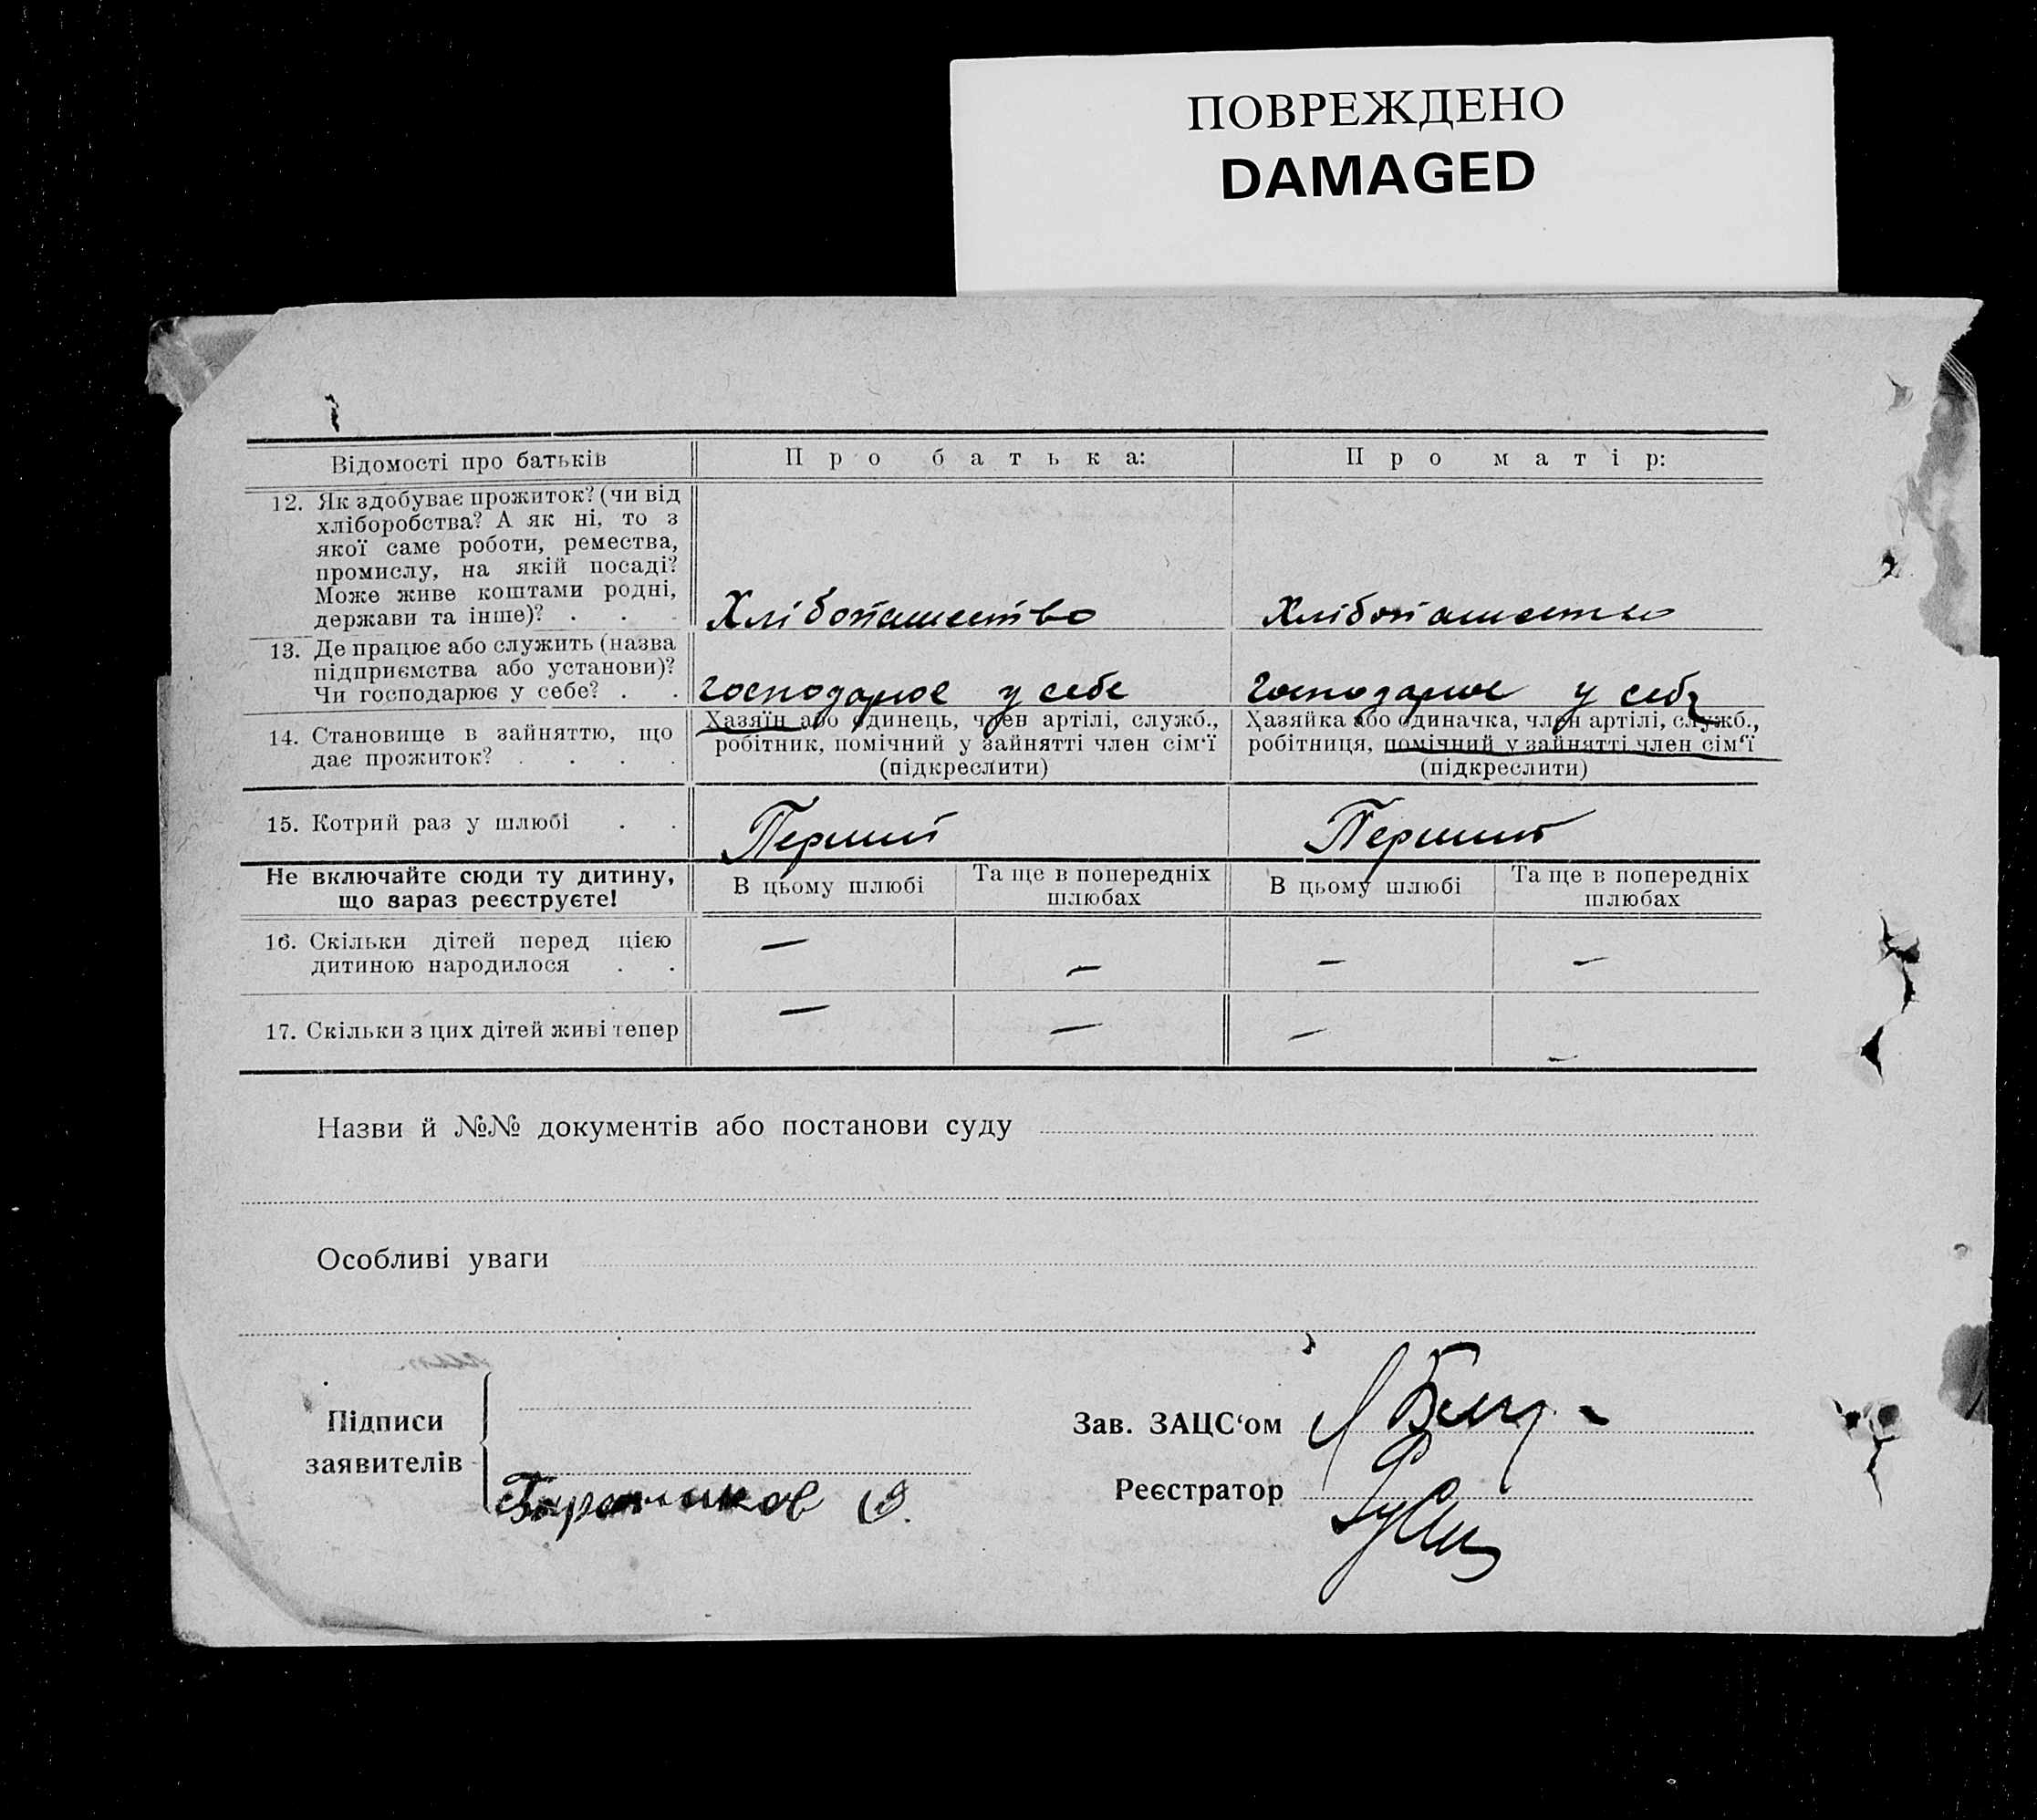 ПОВРЕЖДЕНО
DAMAGED
Відомості про батьків
Про батька:
Про матір:
12. Як здобуває прожиток? (чи від
хліборобства? А як ні, то з
якої саме роботи, ремества,
промислу, на якій посаді?
Може живе коштами родні,
держави та інше)? . . .
Хлібопашество
Хлібопашество
13. Де працює або служить (назва
підприємства або установи)?
Чи господарює у себе? . .
господарює у себе
господарює у себе
14. Становище в зайняттю, що
дає прожиток? . . . .
Хазяїн або одинець, член артілі, служб.,
робітник, помічний у зайнятті член сім‘ї
(підкреслити)
Хазяйка або одиначка, член артілі, служб.,
робітниця, помічний у зайнятті член сім‘ї
(підкреслити)
15. Котрий раз у шлюбі . .
Перший
Перший
Не включайте сюди ту дитину,
що зараз реєструєте!
В цьому шлюбі
Та ще в попередніх
шлюбах
В цьому шлюбі
Та ще в попередніх
шлюбах
16. Скільки дітей перед цією
дитиною народилося . .
— — — —
17. Скільки з цих дітей живі тепер
— — — —
Назви й №№ документів або постанови суду
Особливі уваги
Підписи
заявителів
Зав. ЗАЦС‘ом
Реєстратор